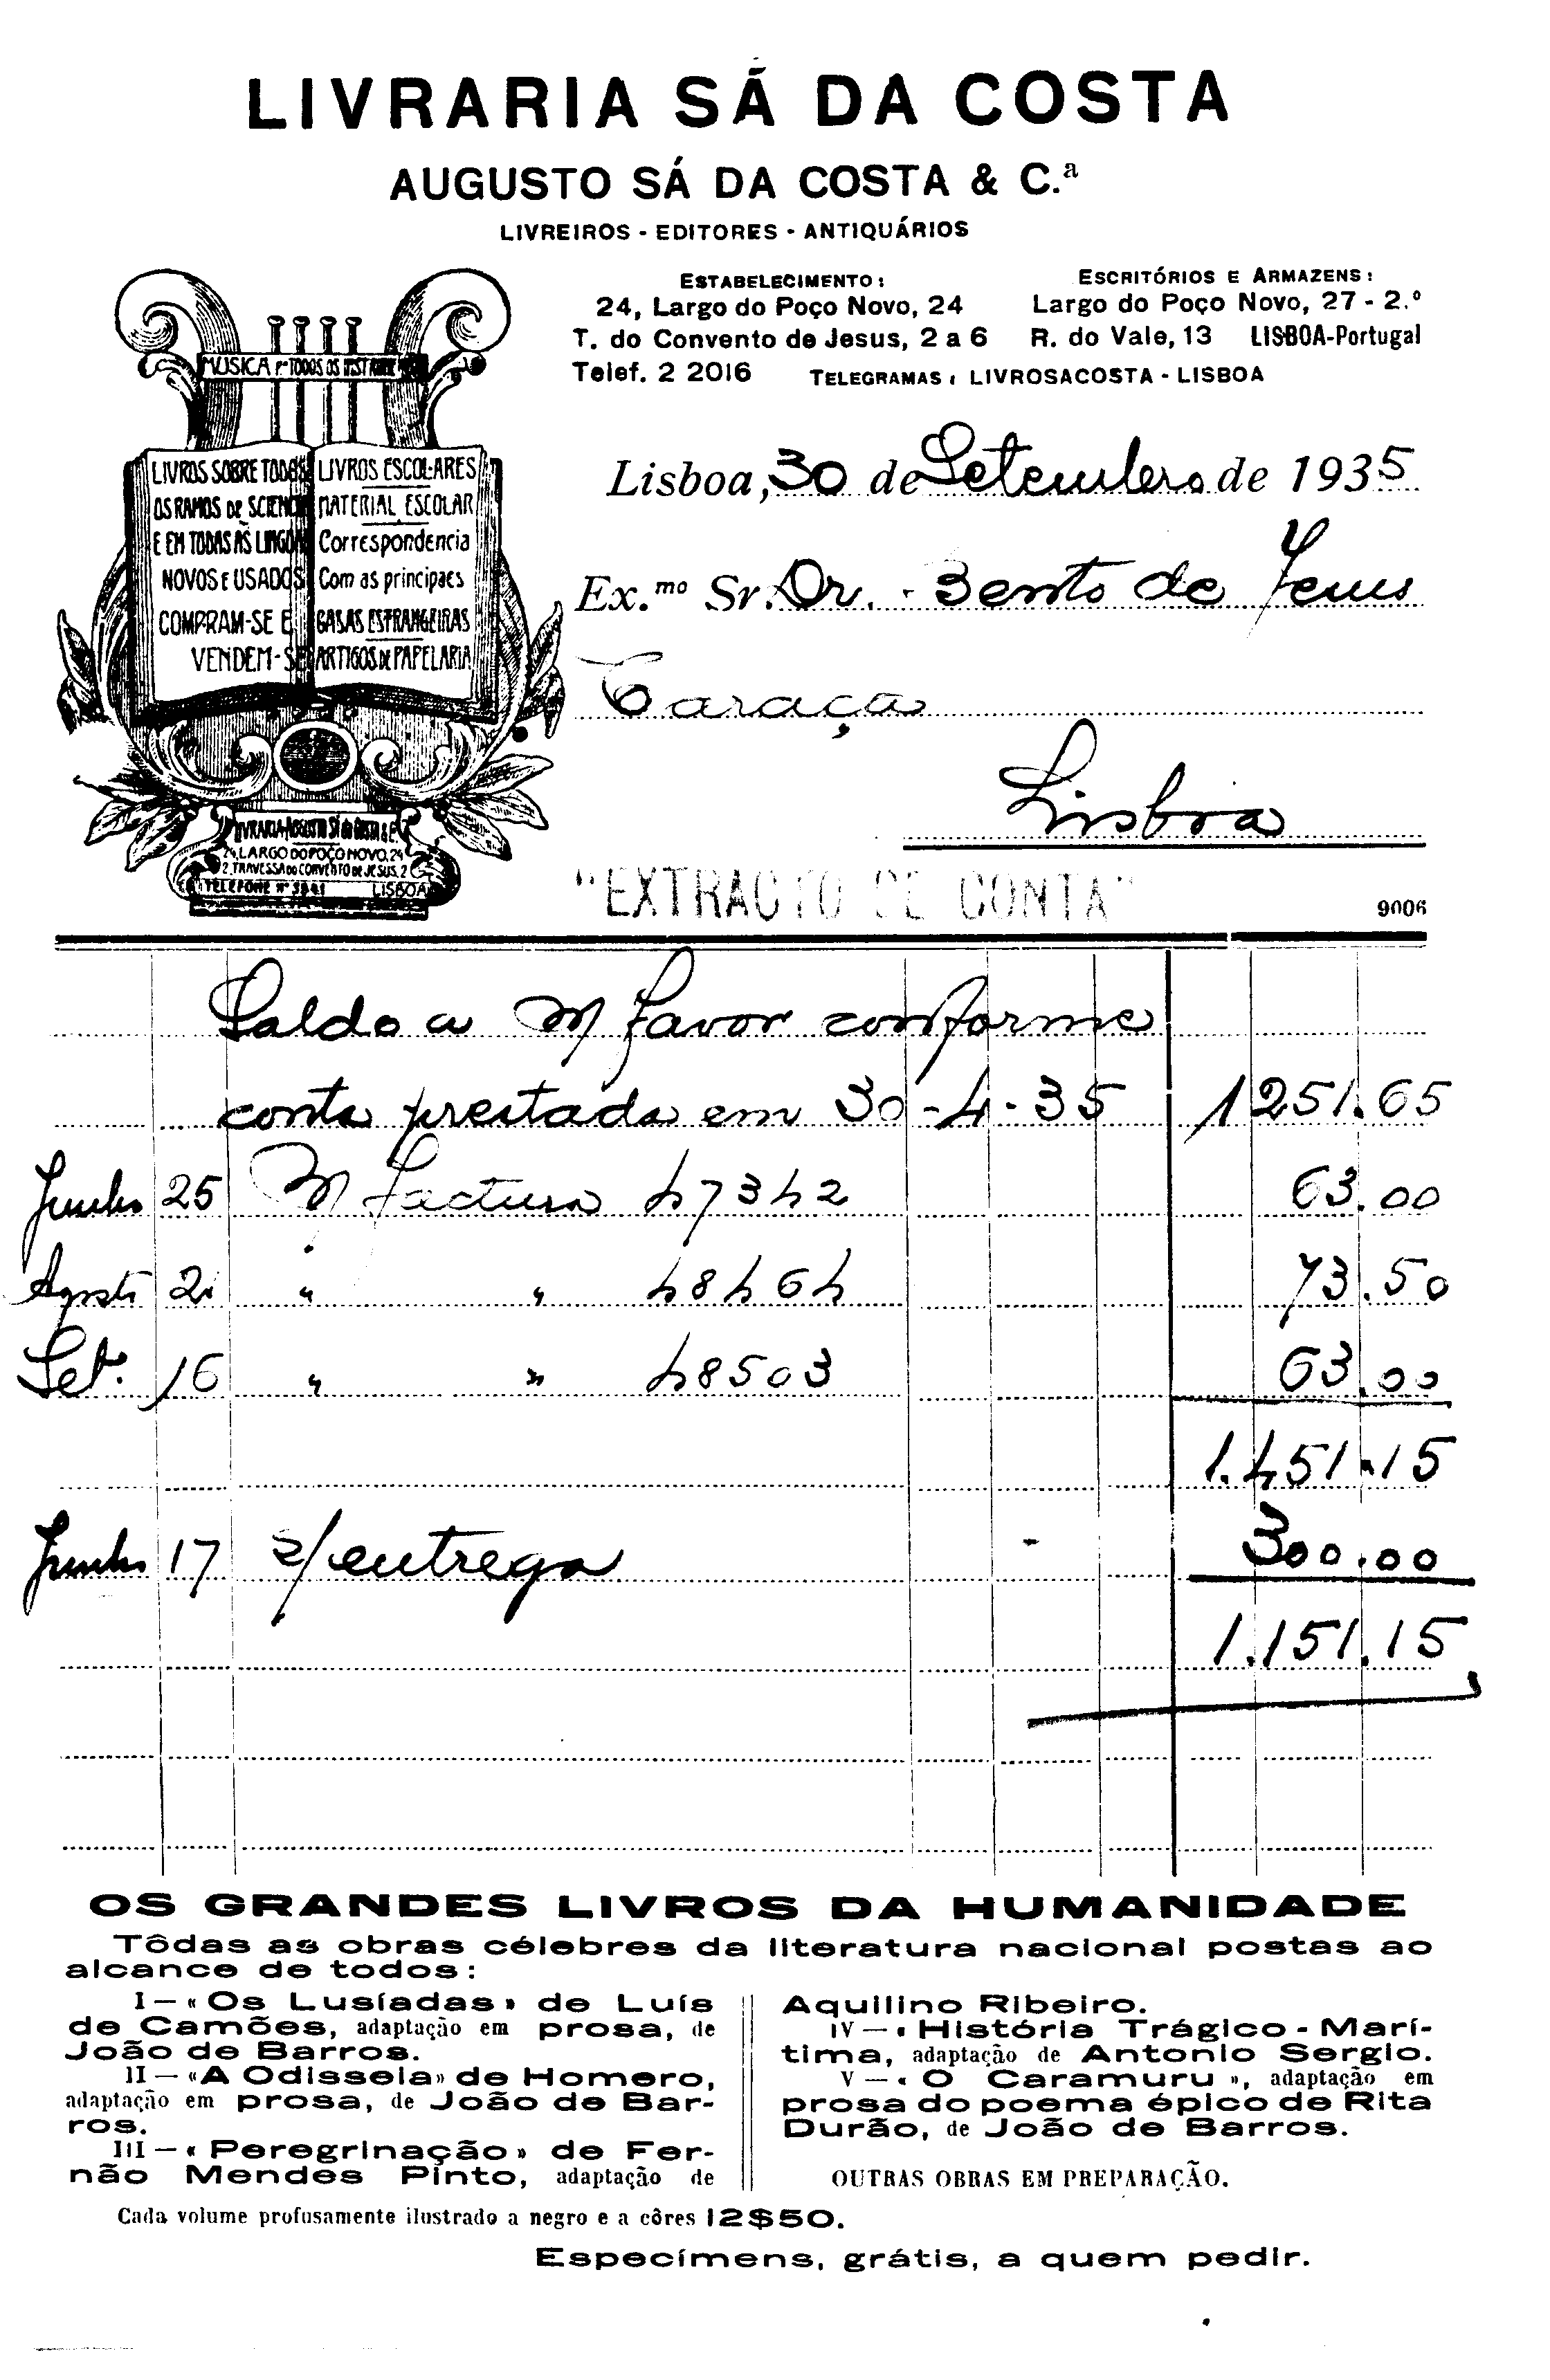 LIVRARIA SÁ DA COSTA
AUGUSTO SÁ DA COSTA & C.ª
LIVREIROS - EDITORES - ANTIQUÁRIOS
ESTABELECIMENTO:
24, Largo do Poço Novo, 24
T. do Convento de Jesus, 2 a 6
Telef. 2 2016
ESCRITÓRIOS E ARMAZENS:
Largo do Poço Novo, 27 - 2.º
R. do Vale, 13 LISBOA-Portugal
TELEGRAMAS: LIVROSACOSTA - LISBOA
MUSICA Pª TODOS OS
LIVROS SOBRE TODOS
OS RAMOS DE SCIENCIA
E EM TODAS AS LINGOAS
NOVOS E USADOS
COMPRAM-SE E
VENDEM-SE
LIVROS ESCOLARES
MATERIAL ESCOLAR
Correspondencia
Com as principaes
CASAS ESTRANGEIRAS
ARTIGOS DE PAPELARIA
LIVRARIA AUGUSTO SÁ DA COSTA & Cª
24, LARGO DO POÇO NOVO, 24
2, TRAVESSA DO CONVENTO DE JESUS, 2
TELEFONE Nº LISBOA
Lisboa, 30 de Setembro de 1935
Ex.mo Sr. Dr. Bento de Jesus
Caraça
Lisboa
"EXTRACTO DE CONTA"
9006
Saldo a M favor conforme
conta prestada em 30-4-35 1251.65
Junho 25 M factura 47342 63.00
Agosto 2 " " 48464 73.50
Set. 16 " " 48503 63.00
1.451.15
Junho 17 s/entrega - 300.00
1.151.15
OS GRANDES LIVROS DA HUMANIDADE
Tôdas as obras célebres da literatura nacional postas ao
alcance de todos:
I — «Os Lusíadas» de Luís
de Camões, adaptação em prosa, de
João de Barros.
II — «A Odisseia» de Homero,
adaptação em prosa, de João de Bar-
ros.
III — «Peregrinação» de Fer-
não Mendes Pinto, adaptação de
Aquilino Ribeiro.
IV — «História Trágico-Marí-
tima, adaptação de Antonio Sergio.
V — «O Caramuru», adaptação em
prosa do poema épico de Rita
Durão, de João de Barros.
OUTRAS OBRAS EM PREPARAÇÃO.
Cada volume profusamente ilustrado a negro e a côres 12$50.
Especímens, grátis, a quem pedir.